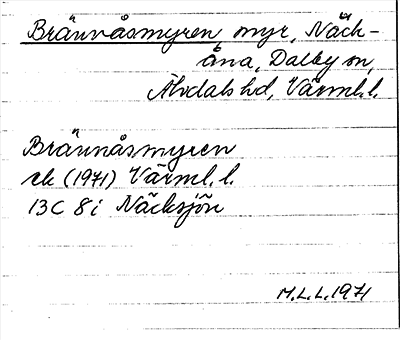 Brännåsmyren myr, Näck-
åna, Dalby sn,
Älvdals hd, Värml. l.
Brännåsmyren
ek (1971) Värml. l.
13C 8i Näcksjön
M.L.L. 1971